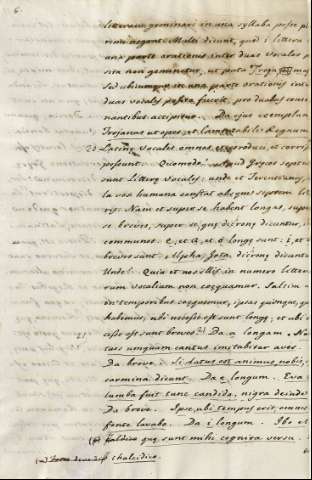 6.
litteram geminari in una syllaba posse plu
rimi negant. Multi dicunt, quod i littera
una parte orationis inter duas vocales po
sita non geminetur, ut puta Troja
Sed ubicumque in una parte orationis inter
duas vocales posita fuerit, pro duabus conso
nantibus accipitur. Da ejus exemplum
Trojanas ut opes, et lamentabile Regnum
20 Latinę vocales omnes et produci, et corripi
possunt. Quomodo? Apud Gręcos septem
sunt Litterę vocales: unde et Terentianus,
la vox humana constat absque septem litte
ris. Nam et super se habent longas, super
se breves, super se, quę dicuntur,
communes. et longę sunt: et
breves sunt. Alpha, Jota, dicuntur
Unde? Quia et nos illis in numero littera
rum vocalium non coęquamur. Saltem
in temporibus coęquemur, ipsas quinque, quas
habemus, ubi necesse est sunt longę, et ubi ne
cesse est sunt breves. Da a longam. Na
21 tus unguam cantus imitabitur aves.
Da breve. Si datus est animus nobis,
carmina dicunt. Da e longum. Eva
lumba fuit tunc candida, nigra deinde
Da breve. Ipse, ubi tempus erit, omnes
fonte lavabo. Da i longum. Ibo et
Caldico quę sunt mihi cognita versu.
chalcidico.